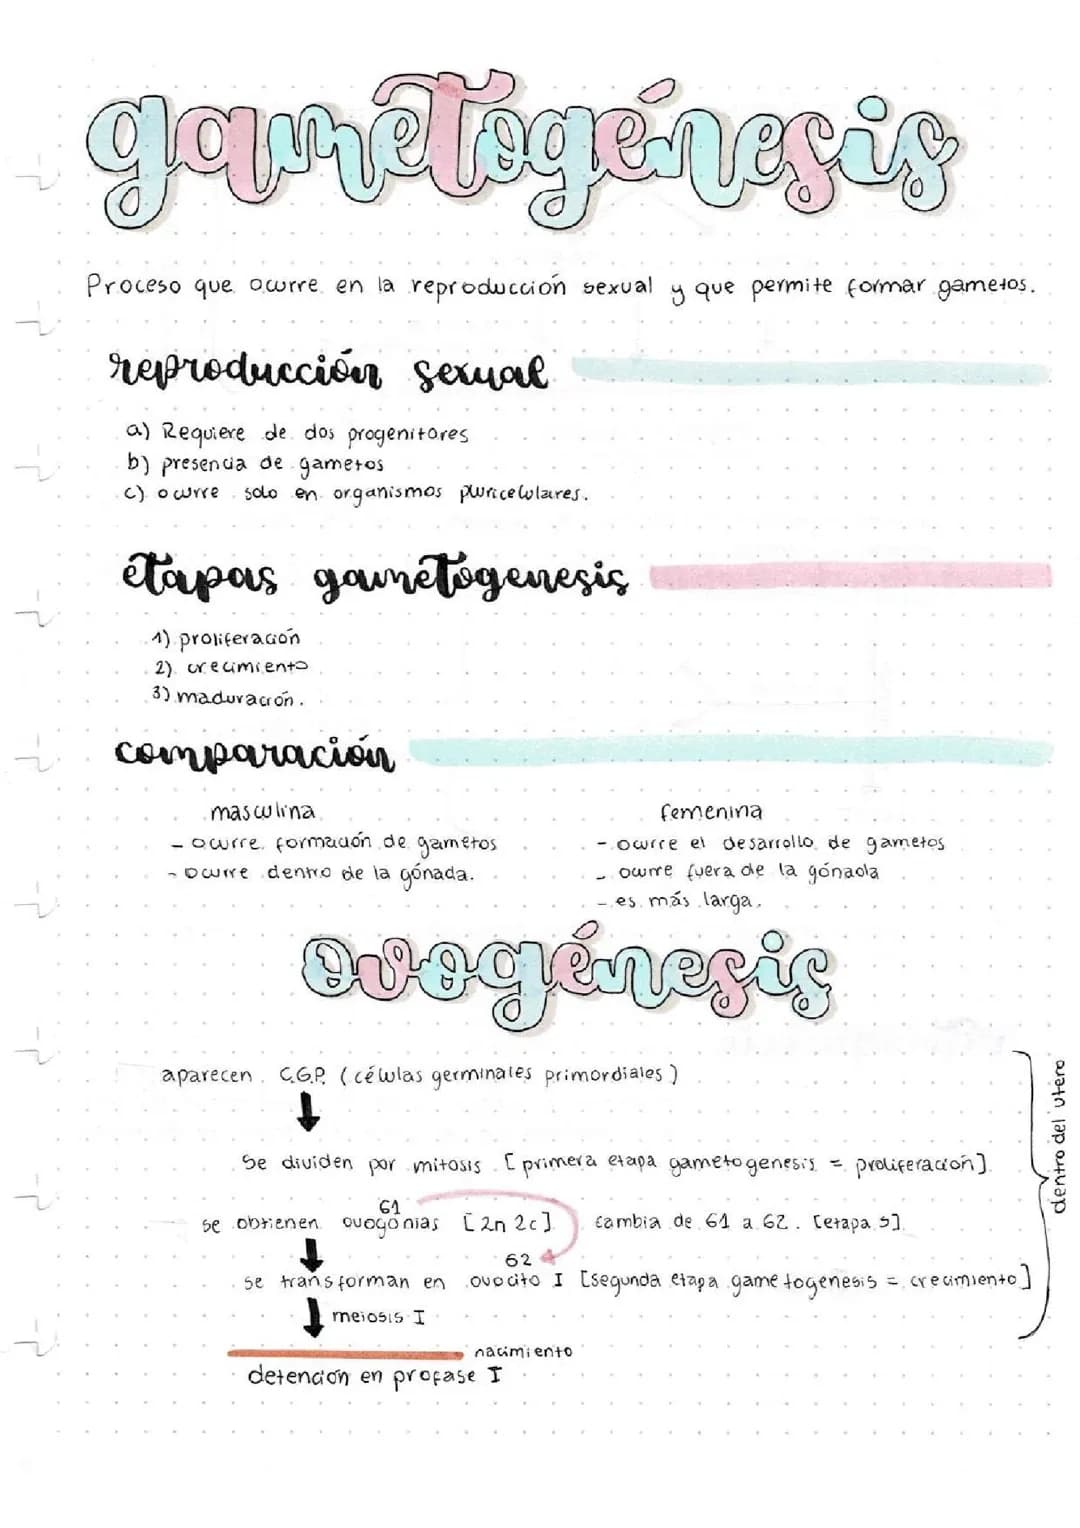 gametogénesis
Proceso que ocurre en la reproducción sexual y que permite formar gametos.
reproducción sexual
a) Requiere de dos progenitores
b) presencia de gametos
c) ocurre solo en organismos pluricelulares.
etapas gametogenesis
1) proliferación
2) crecimiento
3) maduración.
comparación
masculina
- ocurre formación de gametos
- ocurre dentro de la gónada.
femenina
- ocurre el desarrollo de gametos
- ocurre fuera de la gónada
- es más larga.
ovogénesis
aparecen C.G.P. (células germinales primordiales)
Se dividen por mitosis [primera etapa gametogenesis = proliferación].
G1
se obtienen ovogonias [2n 2c] cambia de G1 a G2. [etapa S]
G2
se transforman en ovocito I [segunda etapa gametogenesis = crecimiento]
meiosis I
nacimiento
detención en profase I
dentro del utero